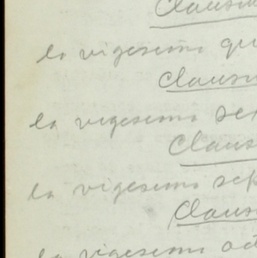 Clausu
la vigesima qu
Clausu
la vigesima sex
Claus
la vigesima sep
Claus
la vigesima oct